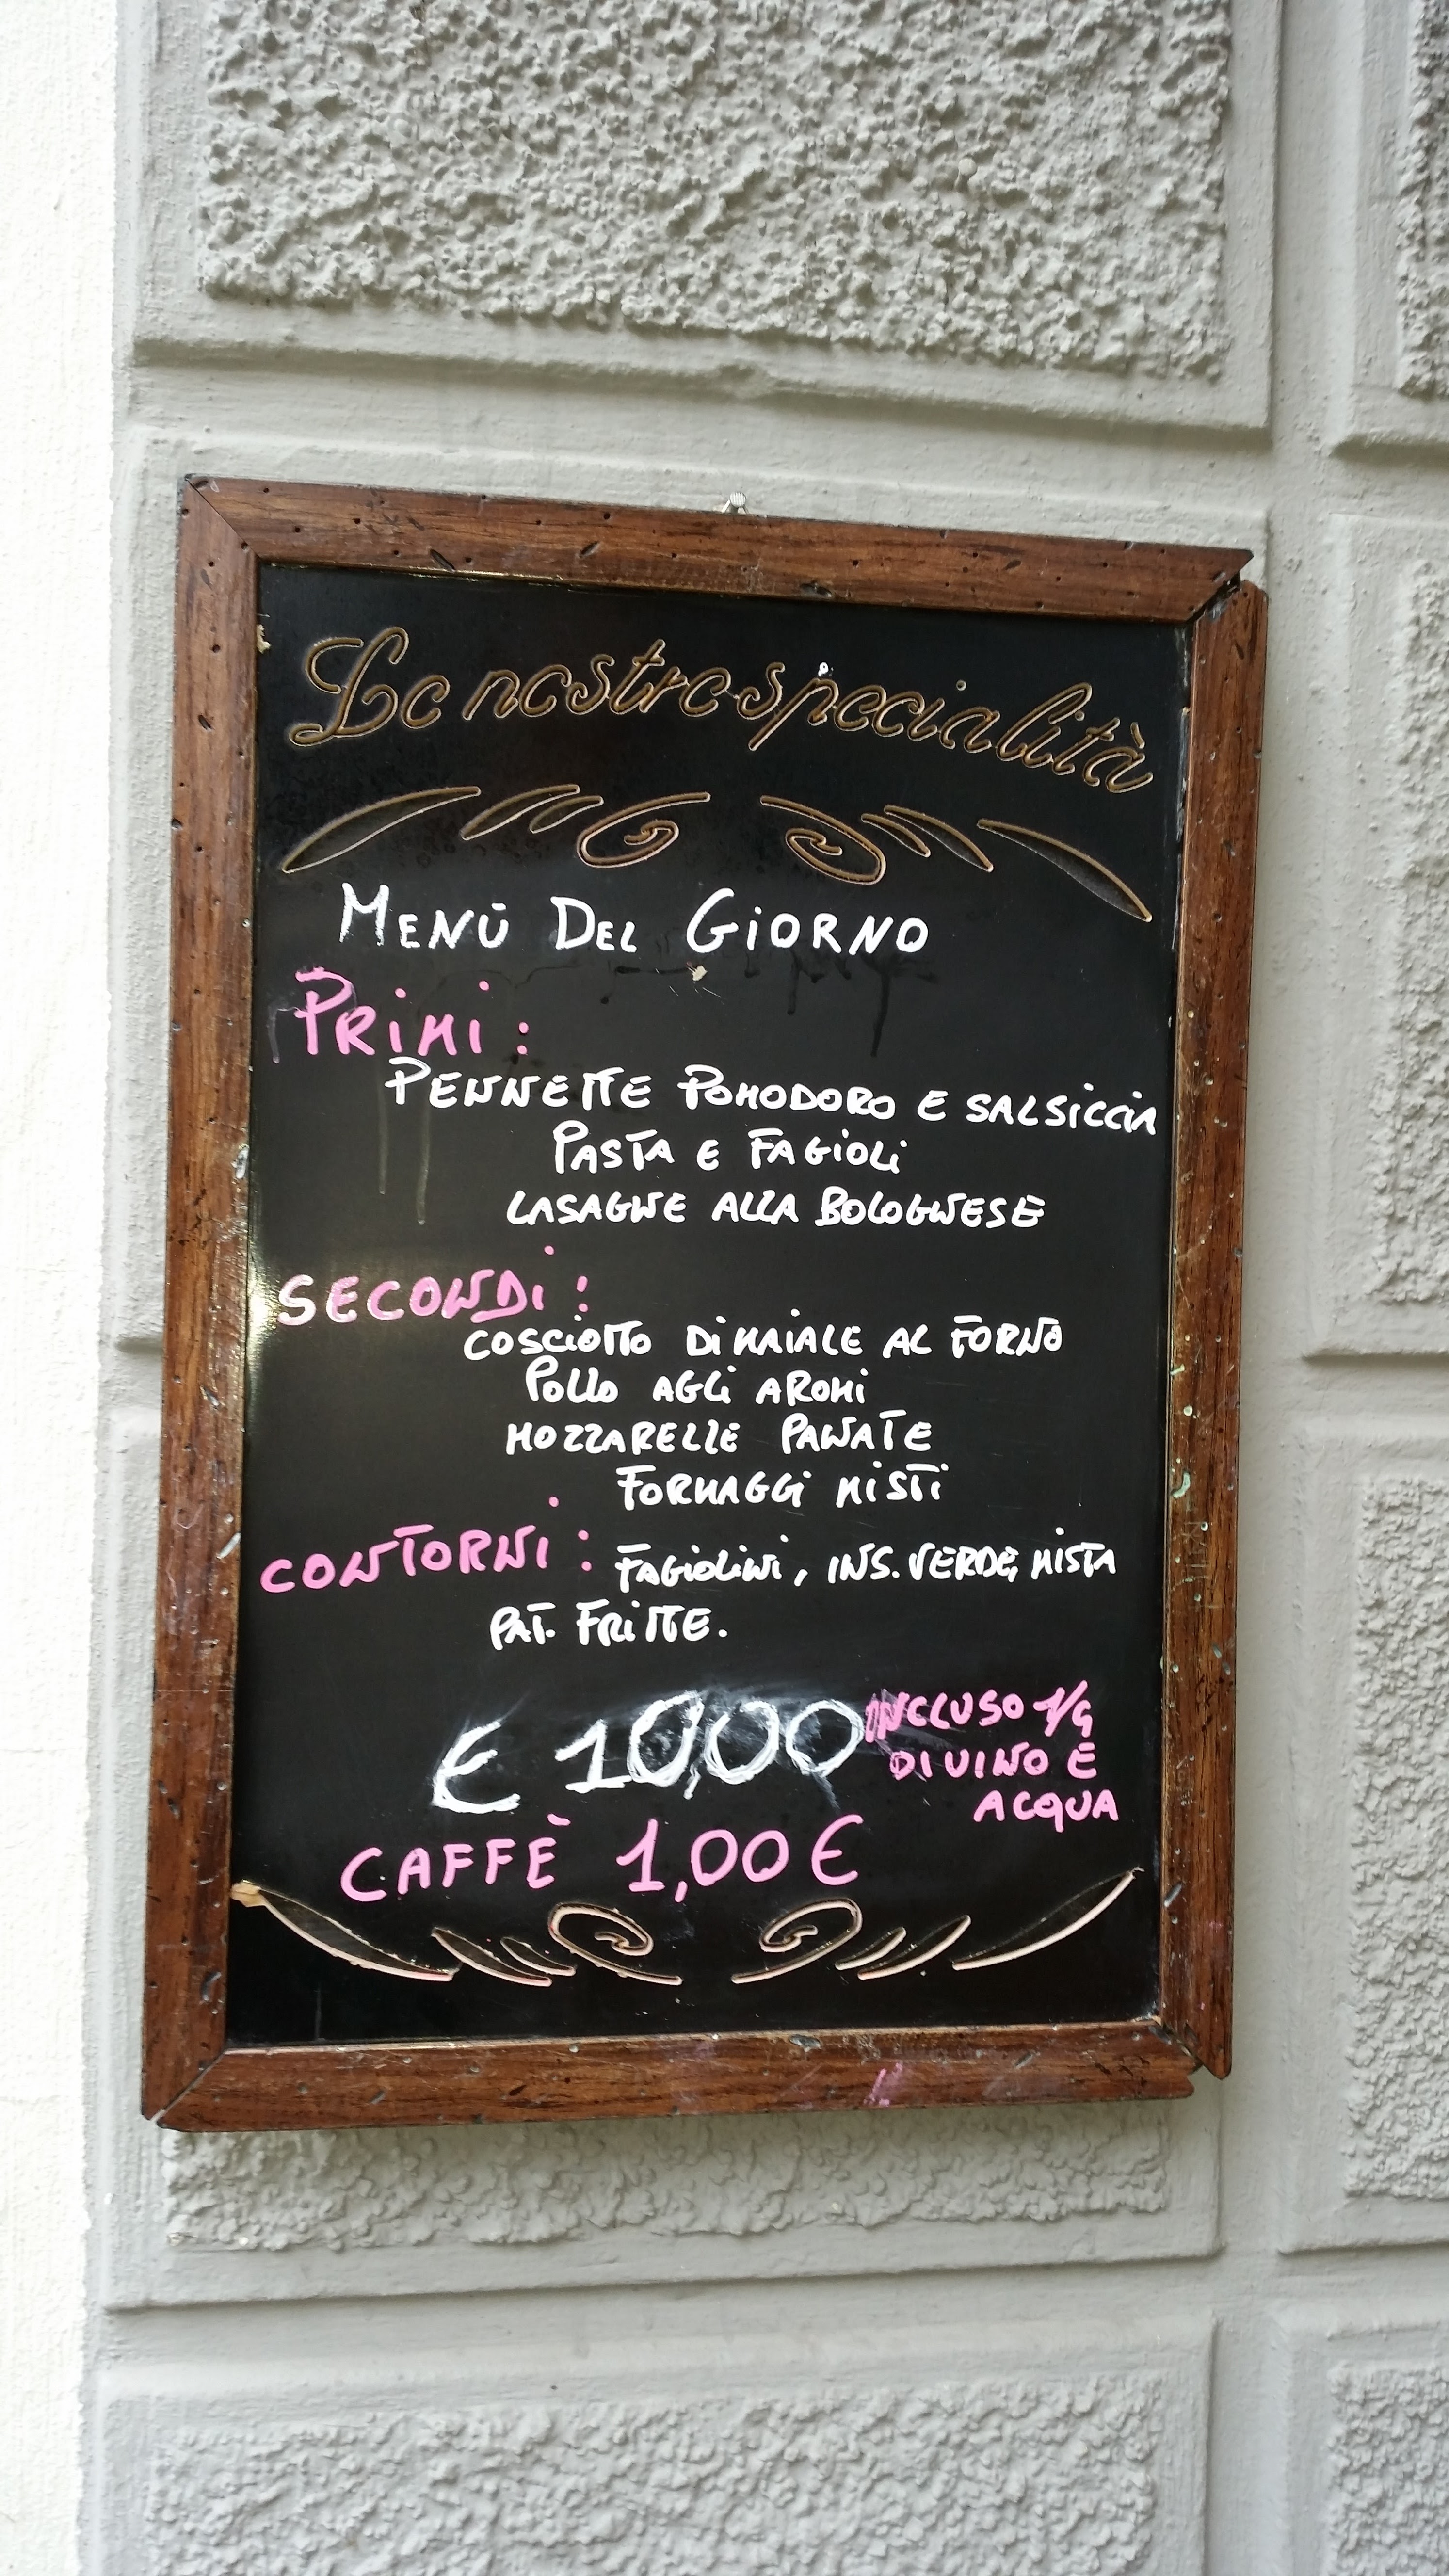 Le nostre specialità
MENÙ DEL GIORNO
PRIMI:
PENNETTE POMODORO E SALSICCIA
PASTA E FAGIOLI
LASAGNE ALLA BOLOGNESE
SECONDI:
COSCIOTTO DI MAIALE AL FORNO
POLLO AGLI AROMI
MOZZARELLE PANATE
FORMAGGI MISTI
CONTORNI: FAGIOLINI, INS. VERDE, MISTA
PAT. FRITTE.
€ 10,00 INCLUSO 1/4
DI VINO E
ACQUA
CAFFÈ 1,00 €